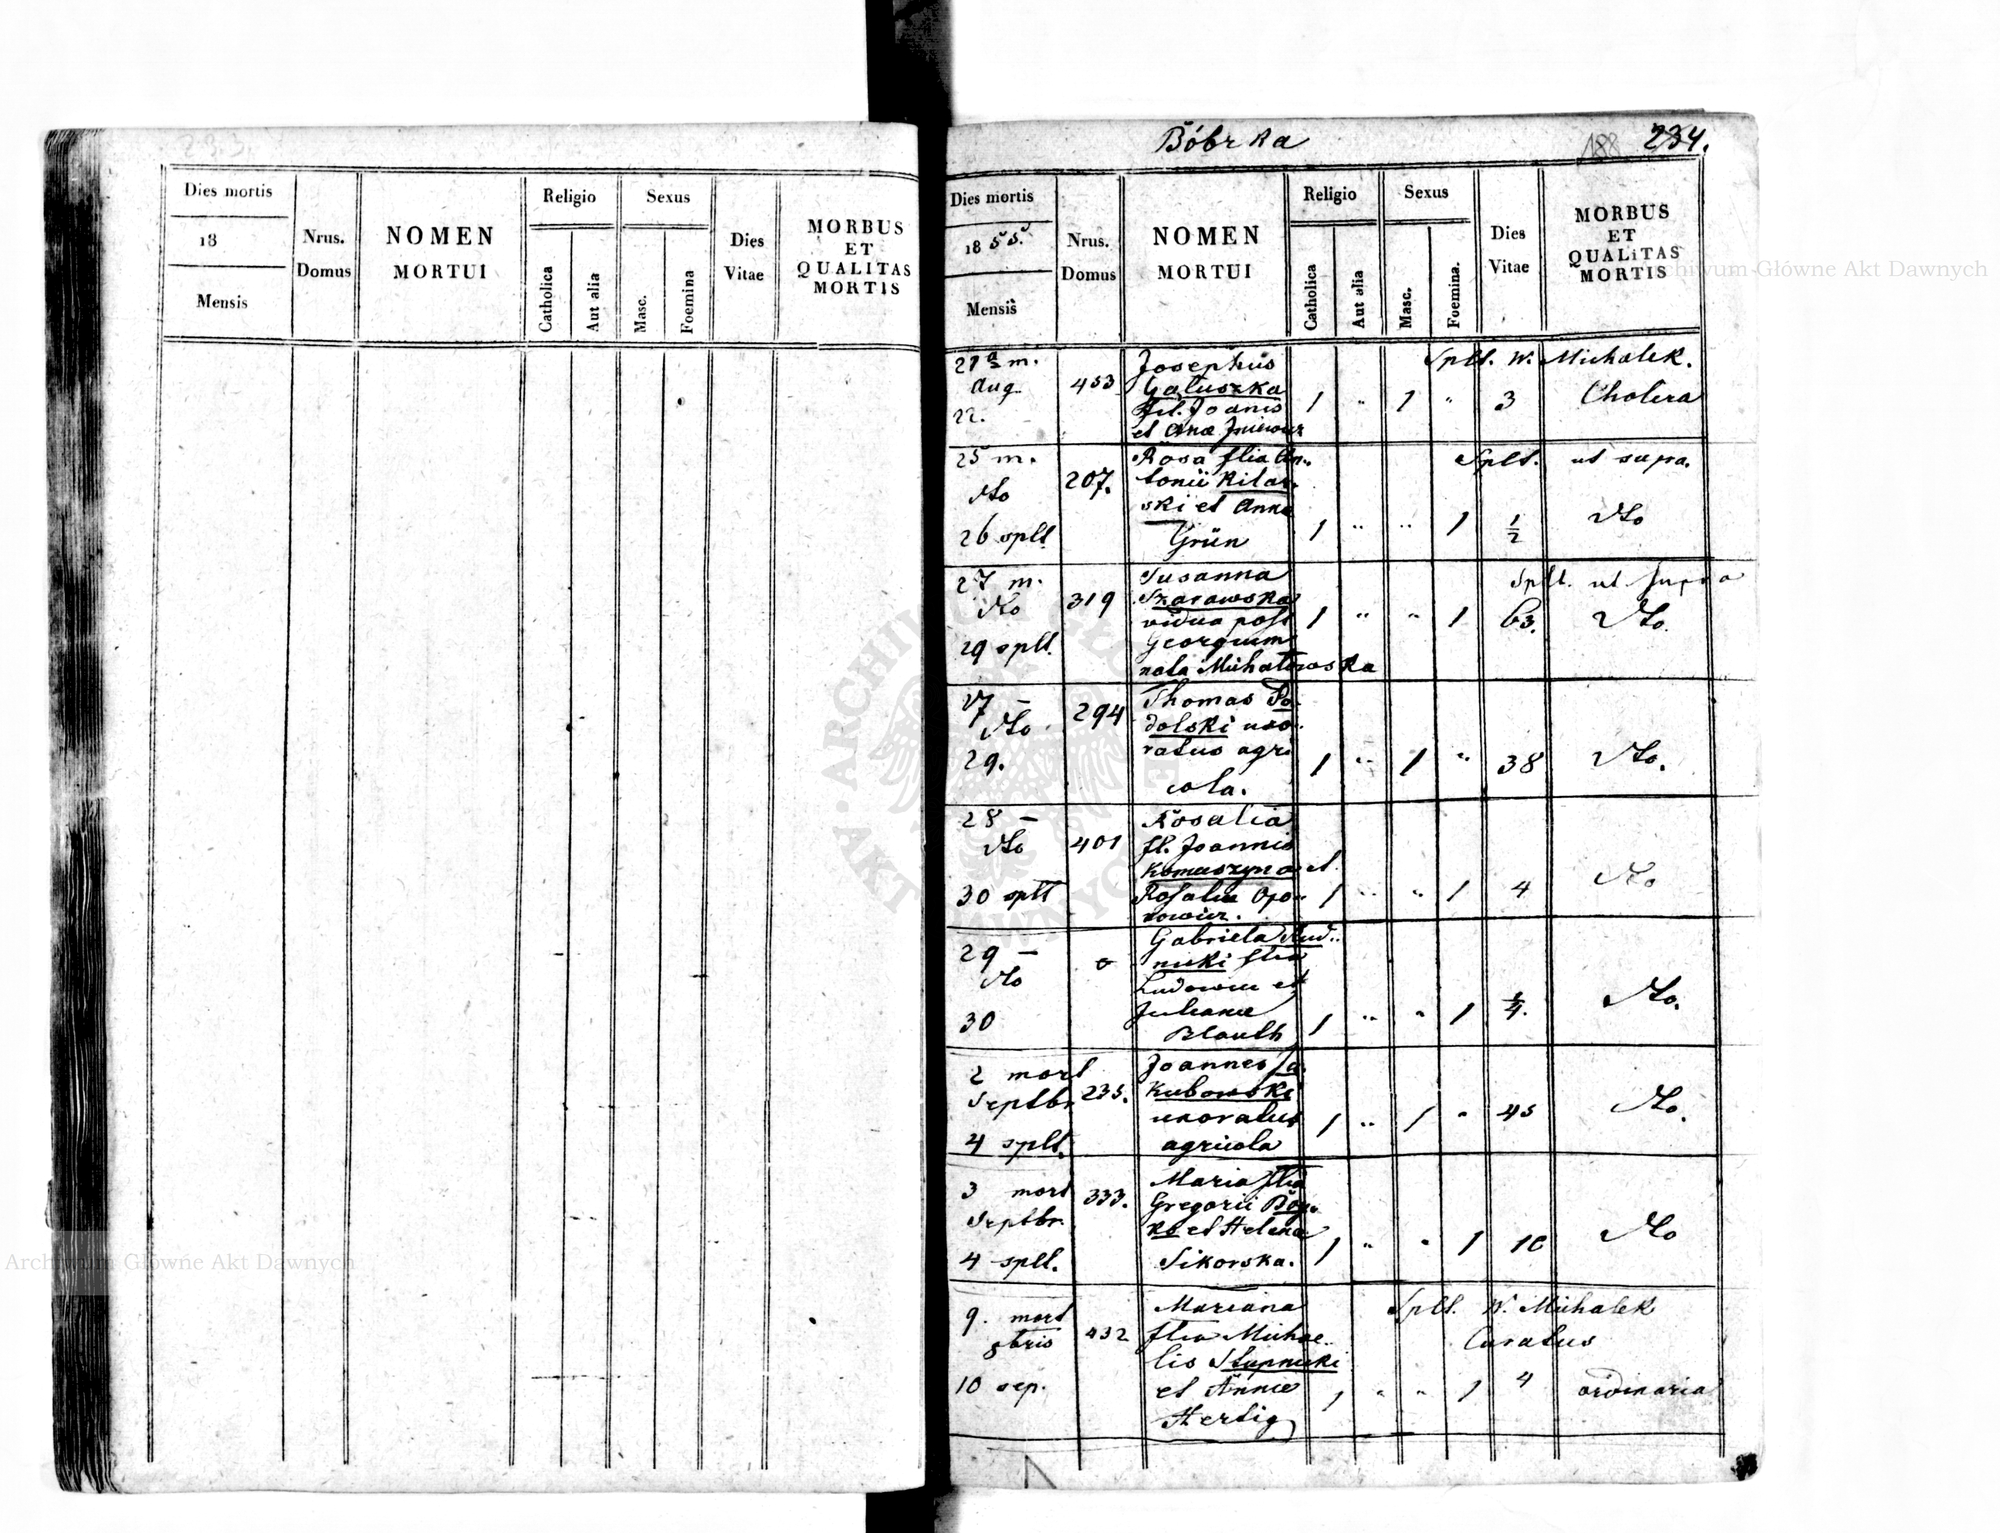 233.
Dies mortis
18
Mensis
Nrus.
Domus
NOMEN
MORTUI
Religio
Catholica
Aut alia
Sexus
Masc.
Foemina
Dies
Vitae
MORBUS
ET
QUALITAS
MORTIS
Bóbrka
188
234.
Dies mortis
1855.
Mensis
Nrus.
Domus
NOMEN
MORTUI
Religio
Catholica
Aut alia
Sexus
Masc.
Foemina.
Dies
Vitae
MORBUS
ET
QUALITAS
MORTIS
21 m.
Aug
22.
453
Josephus
Gałuszka
fil. Joanis
et Anae
1 " 1 " 3
Splt. W. Michalek.
Cholera
25 m.
26 splt.
207.
Rosa flia An-
tonii Kilar-
ski et Anna
Grün
1 " " 1 1/2
Splt. ut supra.
27 m.
29 splt.
319
Susanna
Szarawska
vidua post
Georgium
nata Michałowska
1 " " 1 63.
Splt. ut supra
27 –
29.
294
Thomas Po-
dolski uxo-
ratus agri
cola.
1 " 1 " 38
28 –
30 splt
401
Rosalia
fl. Joannis
Komaszyna et
Rosaliae
1 " " 1 4
29 –
30
Gabriela Rud-
nicki flia
Ludovici et
Julianae
Blauth
1 " " 1 1/4.
2 mort
Septbr
4 splt.
235.
Joannes Ja-
kubowski
uxoratus
agricola
1 " 1 " 45
3 mort
Septbr.
4 splt.
333.
Maria flia
Gregorii Boy-
ko et Helena
Sikorska.
1 " " 1 10
9. mort
8bris
10 sep.
432
Mariana
flia Michae-
lis Słupnicki
et Annae
Hertig
1 " " 1 4
Splt. W. Michalek
Curatus
ordinaria
Archiwum Główne Akt Dawnych
Archiwum Główne Akt Dawnych
ARCHIWUM GŁÓWNE AKT DAWNYCH